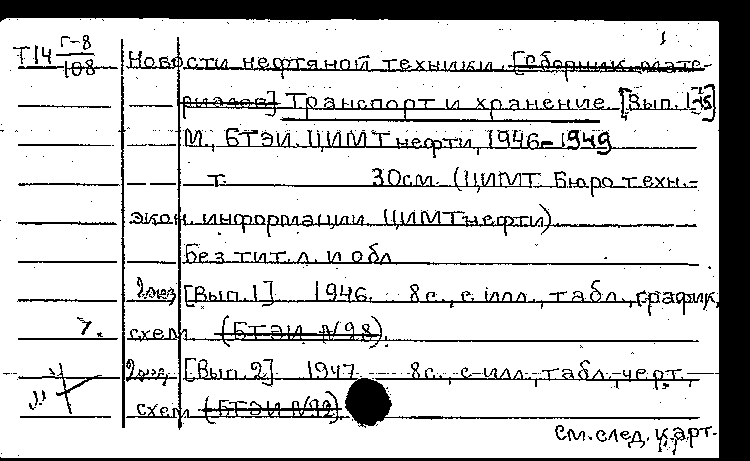 1
Т14 Г-8/108 Новости нефтяной техники. [Сборник мате-
риалов] Транспорт и хранение. [Вып. 1-15]
М., БТЭИ ЦИМТнефти, 1946-1949
т. 30см. (ЦИМТ. Бюро техн.-
экон. информации ЦИМТнефти)
Без тит. л. и обл
2экз [Вып. 1] 1946. 8с., с илл., табл., график,
7. схем. (БТЭИ №98).
2экз [Вып. 2] 1947. 8с., с илл., табл., черт.,
схем (БТЭИ №92)
см. след. карт.